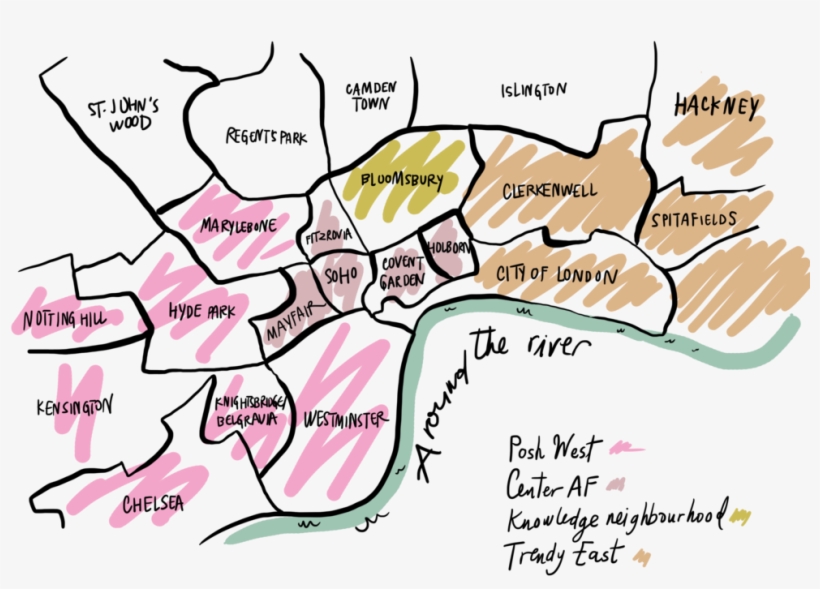 ST. JOHN'S
WOOD
REGENTS PARK
CAMDEN
TOWN
ISLINGTON
HACKNEY
MARYLEBONE
FITZROVIA
BLOOMSBURY
CLERKENWELL
SPITAFIELDS
NOTTING HILL
HYDE PARK
MAYFAIR
SOHO
COVENT
GARDEN
HOLBORN
CITY OF LONDON
KENSINGTON
KNIGHTSBRIDGE/
BELGRAVIA
WESTMINSTER
CHELSEA
Around the river
Posh West
Center AF
Knowledge neighbourhood
Trendy East